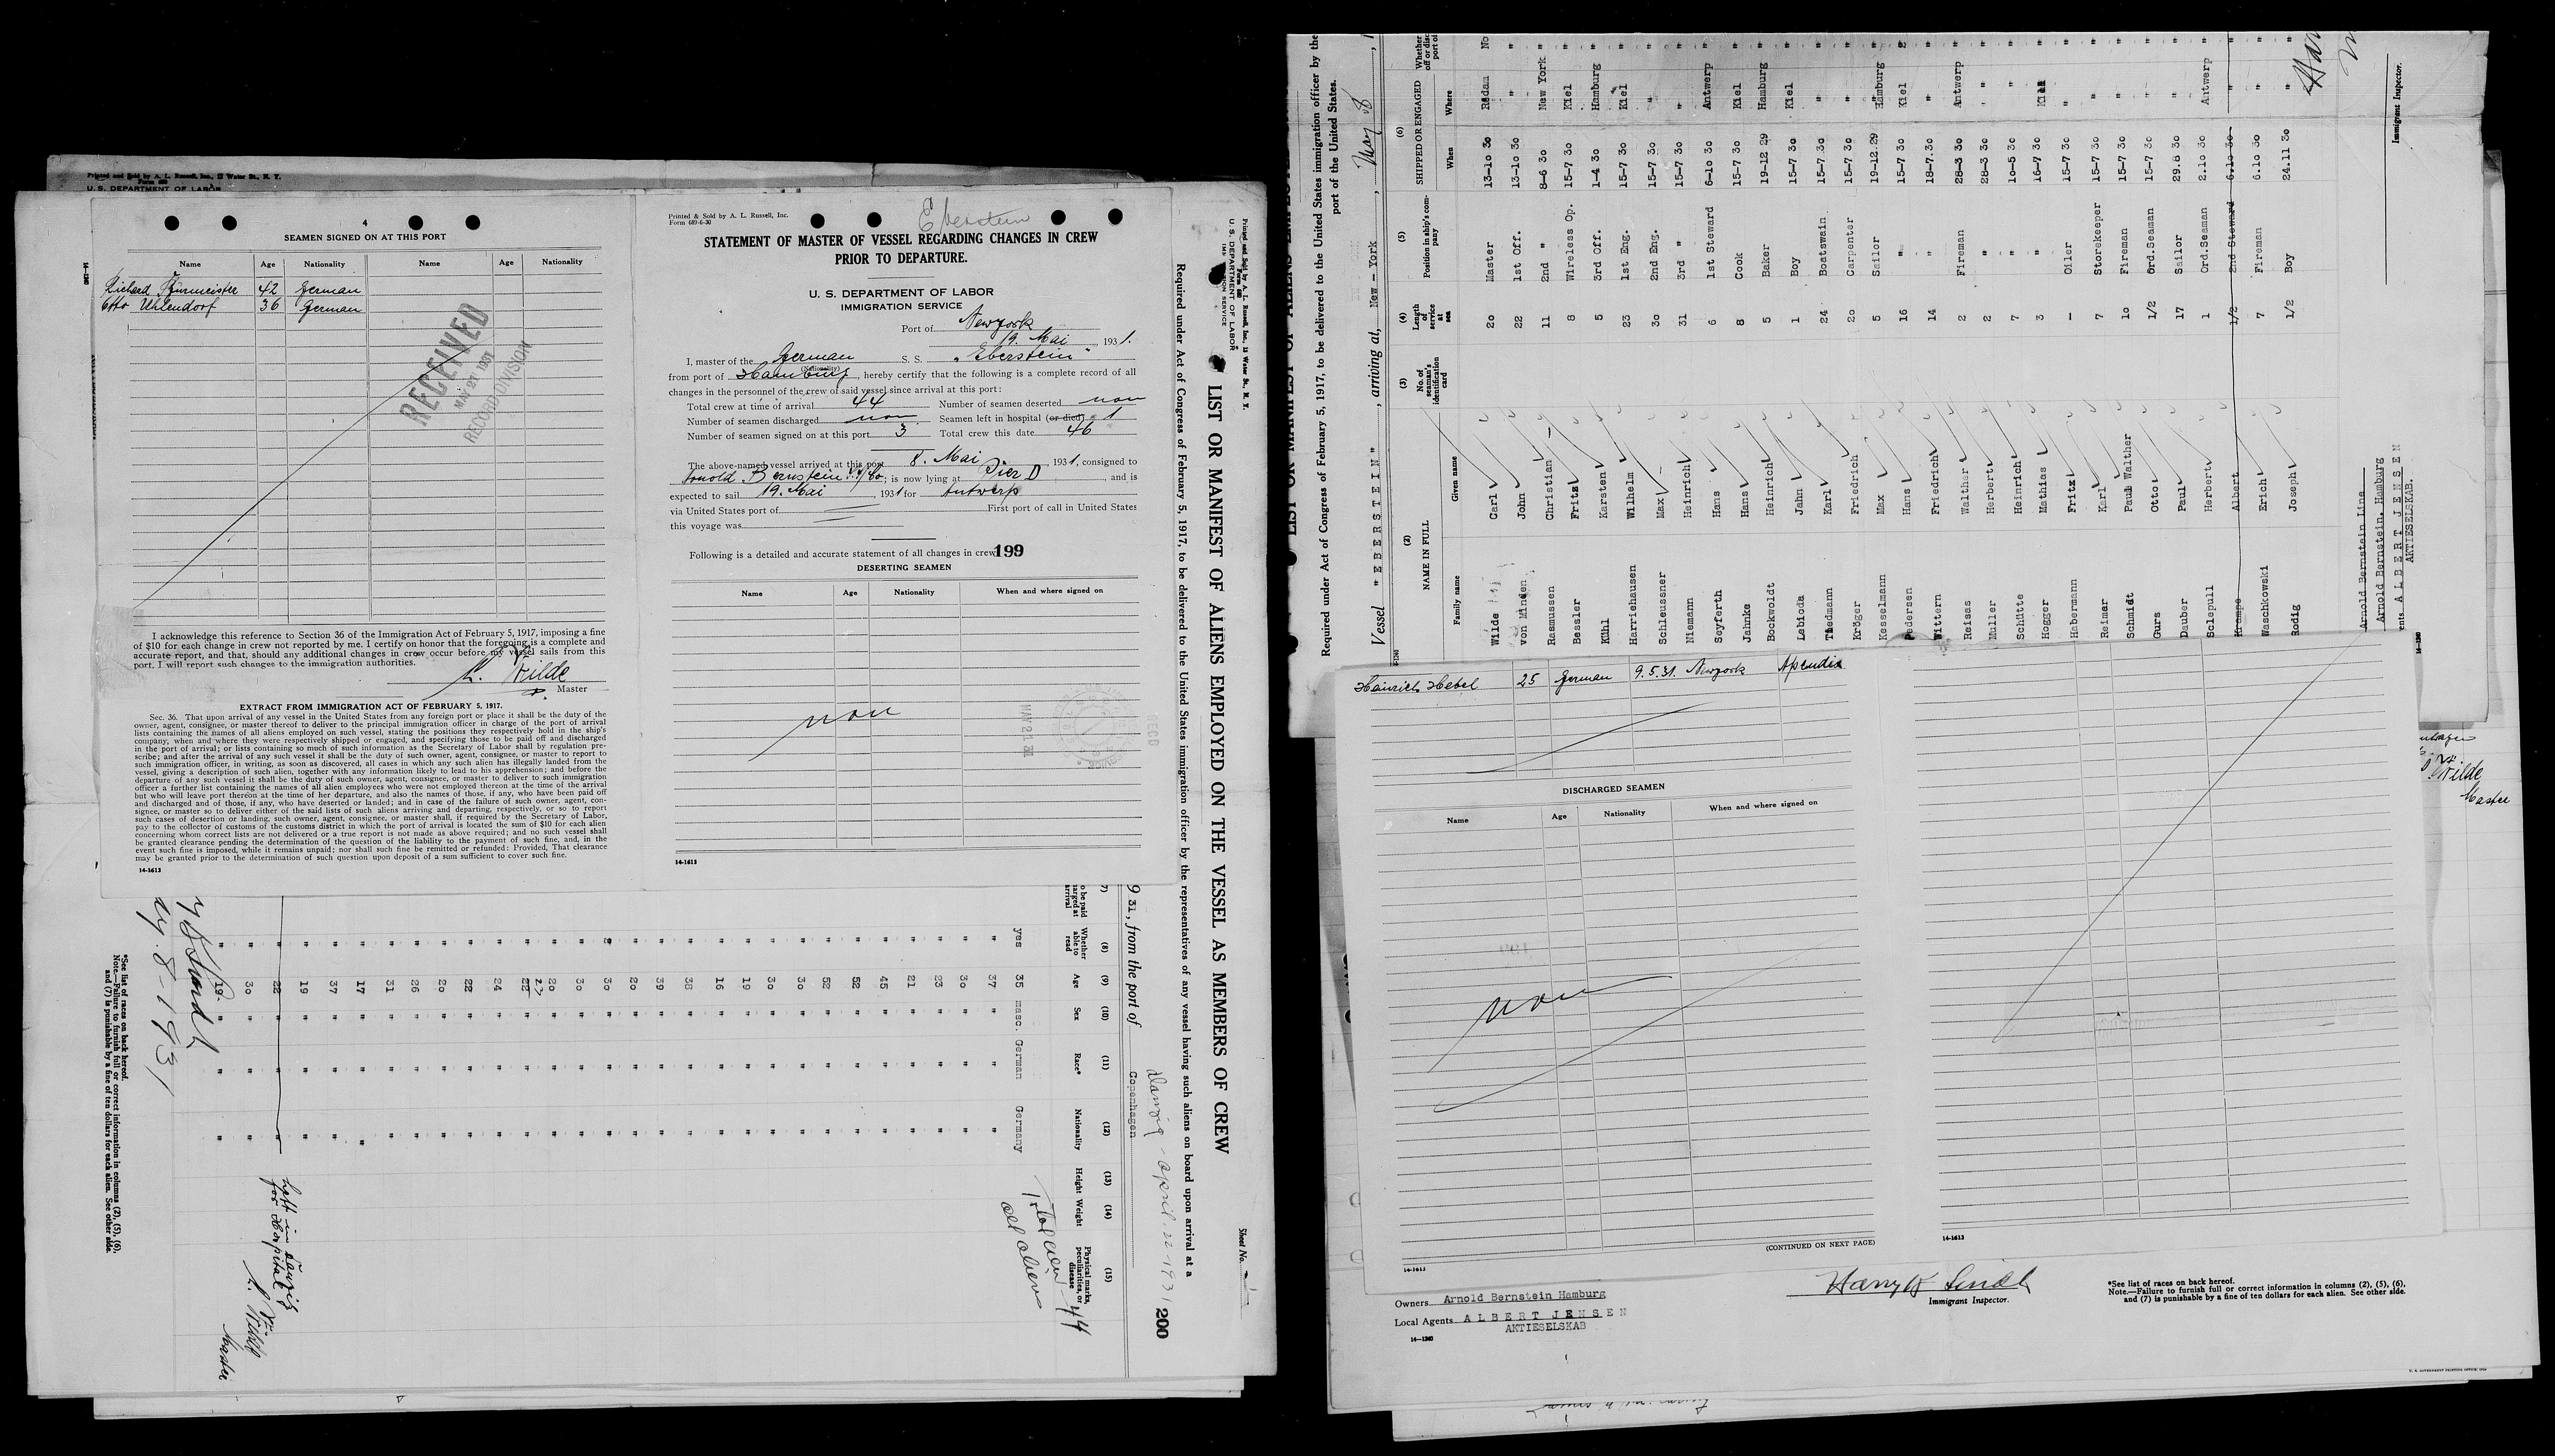 Printed and Sold by A. L. Russell, Inc., 12 Water St., N. Y.
Form 689
U. S. DEPARTMENT OF LABOR
4
SEAMEN SIGNED ON AT THIS PORT
Name Age Nationality Name Age Nationality
Richard 42 German
Otto Uhlendorf 36 German
RECEIVED
MAY 21 1931
RECORD DIVISION
I acknowledge this reference to Section 36 of the Immigration Act of February 5, 1917, imposing a fine
of $10 for each change in crew not reported by me. I certify on honor that the foregoing is a complete and
accurate report, and that, should any additional changes in crew occur before my vessel sails from this
port, I will report such changes to the immigration authorities.
Wilde
Master
EXTRACT FROM IMMIGRATION ACT OF FEBRUARY 5, 1917.
Sec. 36. That upon arrival of any vessel in the United States from any foreign port or place it shall be the duty of the
owner, agent, consignee, or master thereof to deliver to the principal immigration officer in charge of the port of arrival
lists containing the names of all aliens employed on such vessel, stating the positions they respectively hold in the ship's
company, when and where they were respectively shipped or engaged, and specifying those to be paid off and discharged
in the port of arrival; or lists containing so much of such information as the Secretary of Labor shall by regulation pre-
scribe; and after the arrival of any such vessel it shall be the duty of such owner, agent, consignee, or master to report to
such immigration officer, in writing, as soon as discovered, all cases in which any such alien has illegally landed from the
vessel, giving a description of such alien, together with any information likely to lead to his apprehension; and before the
departure of any such vessel it shall be the duty of such owner, agent, consignee, or master to deliver to such immigration
officer a further list containing the names of all alien employees who were not employed thereon at the time of the arrival
but who will leave port thereon at the time of her departure, and also the names of those, if any, who have been paid off
and discharged and of those, if any, who have deserted or landed; and in case of the failure of such owner, agent, con-
signee, or master so to deliver either of the said lists of such aliens arriving and departing, respectively, or so to report
such cases of desertion or landing, such owner, agent, consignee, or master shall, if required by the Secretary of Labor,
pay to the collector of customs of the customs district in which the port of arrival is located the sum of $10 for each alien
concerning whom correct lists are not delivered or a true report is not made as above required; and no such vessel shall
be granted clearance pending the determination of the question of the liability to the payment of such fine, and, in the
event such fine is imposed, while it remains unpaid; nor shall such fine be remitted or refunded: Provided, That clearance
may be granted prior to the determination of such question upon deposit of a sum sufficient to cover such fine.
14-1613
Printed & Sold by A. L. Russell, Inc.
Form 689-6-30
Eberstein
STATEMENT OF MASTER OF VESSEL REGARDING CHANGES IN CREW
PRIOR TO DEPARTURE.
U. S. DEPARTMENT OF LABOR
IMMIGRATION SERVICE
Port of Newyork
19. Mai, 1931.
I, master of the German S. S. "Eberstein"
(Nationality)
from port of Hamburg, hereby certify that the following is a complete record of all
changes in the personnel of the crew of said vessel since arrival at this port:
Total crew at time of arrival 44 Number of seamen deserted non
Number of seamen discharged non Seamen left in hospital (or died) 1
Number of seamen signed on at this port 3 Total crew this date 46
The above-named vessel arrived at this port 8. Mai, 1931, consigned to
Arnold Bernstein; is now lying at Pier D, and is
expected to sail 19. Mai, 1931 for Antwerp
via United States port of First port of call in United States
this voyage was
Following is a detailed and accurate statement of all changes in crew 199
DESERTING SEAMEN
Name Age Nationality When and where signed on
non
MAY 21 31
RECD
14-1613
Printed and Sold by A. L. Russell, Inc., 12 Water St., N. Y.
U. S. DEPARTMENT OF LABOR
Sheet No.
LIST OR MANIFEST OF ALIENS EMPLOYED ON THE VESSEL AS MEMBERS OF CREW
Required under Act of Congress of February 5, 1917, to be delivered to the United States immigration officer by the representatives of any vessel having such aliens on board upon arrival at a
200
Danzig - April. 22 - 1931
931, from the port of Copenhagen
(8) (9) (10) (11) (12) (13) (14) (15)
Whether able to read Age Sex Race* Nationality Height Weight Physical marks, peculiarities, or disease
yes 35 masc. German Germany
" 37 " " "
" 30 " " "
" 23 " " "
" 21 " " "
" 45 " " "
" 52 " " "
" 52 " " "
" 30 " " "
" 30 " " "
" 19 " " "
" 16 " " "
" 38 " " "
" 39 " " "
" 20 " " "
" 30 " " "
" 30 " " "
" 20 " " "
" 22 " " "
" 24 " " "
" 22 " " "
" 20 " " "
" 26 " " "
" 31 " " "
" 17 " " "
" 37 " " "
" 19 " " "
" 22 " " "
" 30 " " "
" 19 " " "
Total crew 44
all aliens
left in Danzig
for Hospital
Wilde
Master
8 - 1931
*See list of races on back hereof.
Note.—Failure to furnish full or correct information in columns (2), (5), (6),
and (7) is punishable by a fine of ten dollars for each alien. See other side.
Required under Act of Congress of February 5, 1917, to be delivered to the United States immigration officer by the
port of the United States.
Vessel "EBERSTEIN", arriving at, New-York, May 8
(2) (3) (4) (5) (6)
NAME IN FULL No. of seaman's identification card Length of service at sea Position in ship's company SHIPPED OR ENGAGED
Family name Given name When Where
Wilde Carl 20 Master 13-10 30 Rodam No
von Minden John 22 1st Off. 13-10 30 " "
Rasmussen Christian 11 2nd " 8-6 30 New York "
Bessler Fritz 8 Wireless Op. 15-7 30 Kiel "
Kühl Karsten 5 3rd Off. 1-4 30 Hamburg "
Harriehausen Wilhelm 23 1st Eng. 15-7 30 Kiel "
Schleussner Max 30 2nd Eng. 15-7 30 " "
Niemann Heinrich 31 3rd " 15-7 30 " "
Seyferth Hans 6 1st Steward 6-10 30 Antwerp "
Jahnke Hans 8 Cook 15-7 30 Kiel "
Bockwoldt Heinrich 5 Baker 19-12 29 Hamburg "
Lebioda Jahn 1 Boy 15-7 30 Kiel "
Thedmann Karl 24 Boatswain 15-7 30 " "
Kröger Friedrich 20 Carpenter 15-7 30 " "
Kesselmann Max 5 Sailor 19-12.29 Hamburg "
Pedersen Hans 16 " 15-7 30 Kiel "
Wittern Friedrich 14 " 18-7.30 " "
Reisas Walther 2 Fireman 28-3 30 Antwerp "
Müller Herbert 2 " 28-3 30 " "
Schütte Heinrich 7 " 10-5 30 " "
Hogger Mathias 3 " 16-7 30 Kiel "
Habermann Fritz - Oiler 15-7 30 " "
Reimar Karl 7 Storekeeper 15-7 30 " "
Schmidt Paul Walther 10 Fireman 15-7 30 " "
Gurs Otto 1/2 Ord.Seaman 15-7 30 " "
Dauber Paul 17 Sailor 29.8 30 " "
Sclepull Herbert 1 Ord.Seaman 2.10 30 Antwerp "
Krampe Albert 1/2 2nd Steward 6.10 30 " "
Waschkowski Erich 7 Fireman 6.10 30 " "
Rodig Joseph 1/2 Boy 24.11 30 " "
Arnold Bernstein Line
Arnold Bernstein, Hamburg
ALBERT JENSEN
AKTIESELSKAB.
Immigrant Inspector.
Heinrich Hebel 25 German 9.5.31. Newyork Apendix
DISCHARGED SEAMEN
Name Age Nationality When and where signed on
non
(CONTINUED ON NEXT PAGE)
14-1613
14-1613
Wilde
Master
Owners Arnold Bernstein Hamburg
Local Agents ALBERT JENSEN
AKTIESELSKAB
14-1240
Immigrant Inspector.
*See list of races on back hereof.
Note.—Failure to furnish full or correct information in columns (2), (5), (6),
and (7) is punishable by a fine of ten dollars for each alien. See other side.